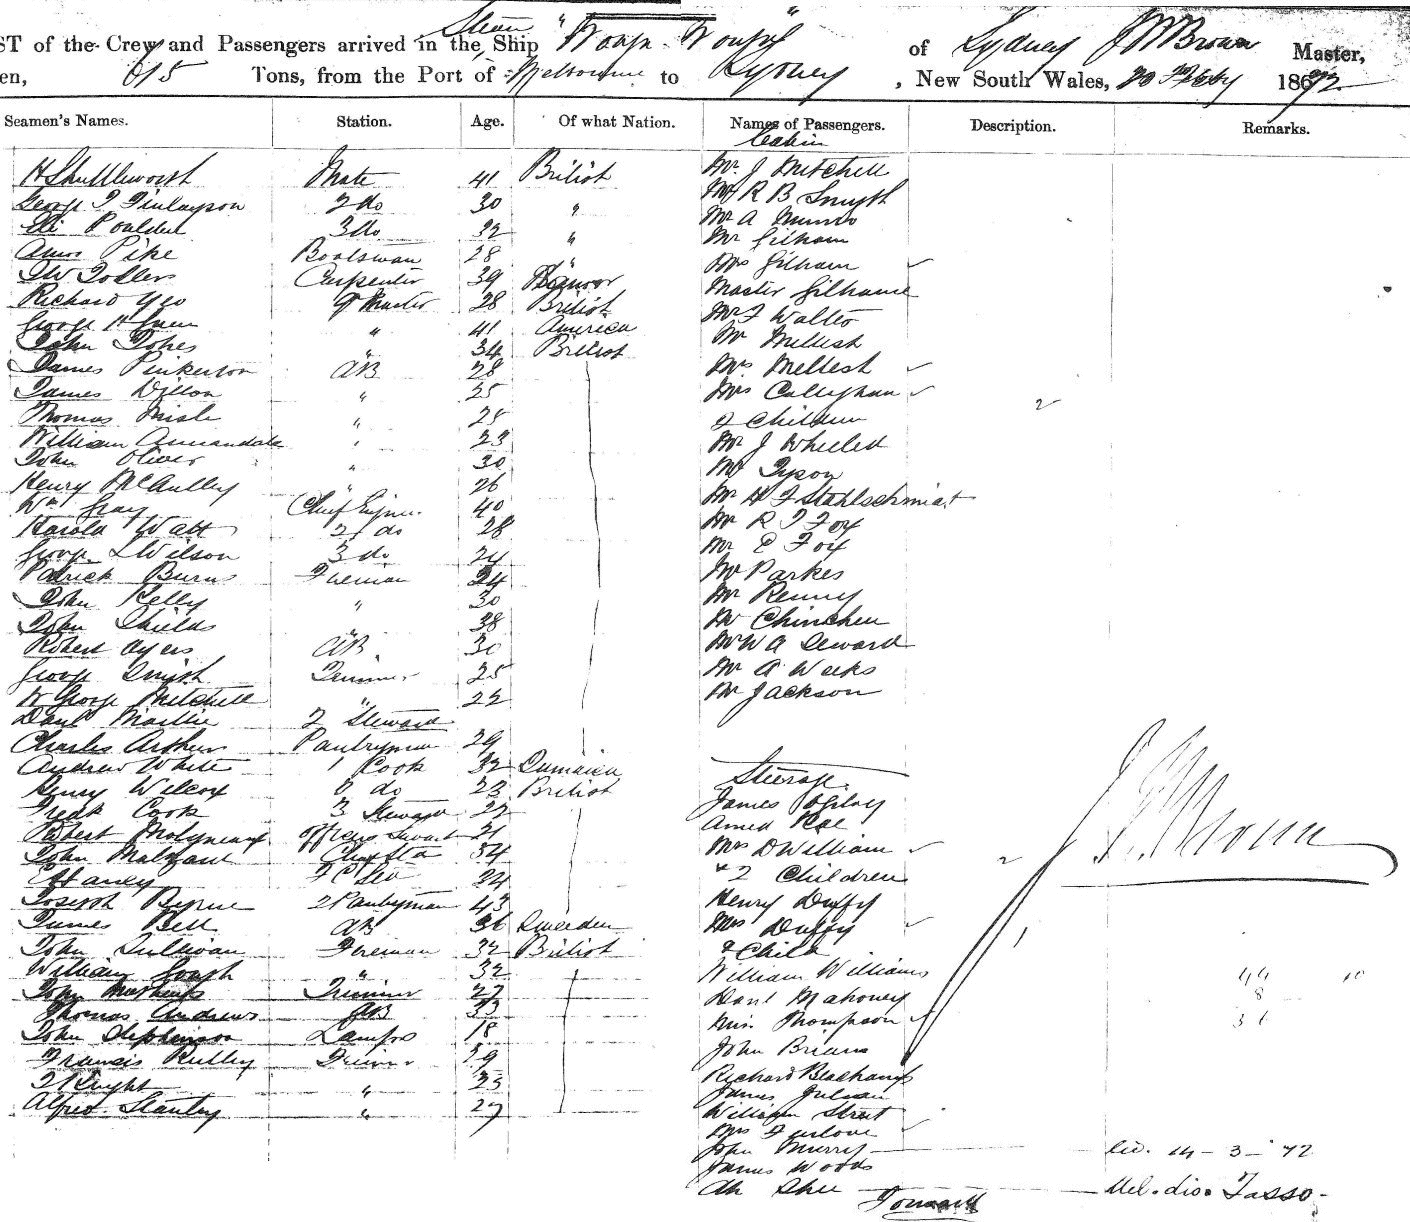 ST of the Crew and Passengers arrived in the Steam Ship "Wonga Wonga" of Sydney J W Brown Master,
en, 615 Tons, from the Port of Melbourne to Sydney, New South Wales, 20 Feby 1872
Seamen's Names. Station. Age. Of what Nation. Names of Passengers. Description. Remarks.
H Shuttleworth Mate 41 British
George T Finlayson 2 do 30 "
Eli Poulden 3 do 32 "
Amos Pike Boatswain 28 "
Carpenter 39 Hanover
Richard Yeo Q Master 28 British
George H Green " 41 America
John Jones " 34 British
James Pinkerton AB 28
James Dillon " 25
Thomas " 25
William Annandale " 23
John Oliver " 30
Henry McAulley " 26
Wm Gray Chief Engineer 40
Harold Watt 2 do 28
George L Wilson 3 do 24
Patrick Burns Fireman 34
John Kelly " 30
John Shields " 38
Robert Ayers AB 30
George Smith Trimmer 25
W George Mitchell " 22
Danl 2 Steward
Charles Arthur Pantryman 29
Andrew White 1 Cook 32 Jamaica
Henry Wilcox 2 do 23 British
Fredk Cook 3 Steward 22
Robert Molyneaux Officers Stewart 21
John 34
E Haney 24
Joseph Byrne 2 Pantryman 43
James Bell AB 36 Sweeden
John Sullivan Fireman 32 British
William Gough " 32
John Mathews Trimmer 27
Thomas Andrews AB 33
John Stephenson Lamps 18
Francis Trimmer 29
T Knight " 25
Alfred Stanley " 27
Cabin
Mr J Mitchell
Mr R B Smyth
Mr A Munro
Mr Gilham
Mrs Gilham
Master Gilham
Mr F Walter
Mr Mellish
Mrs Mellesh
Mrs Callighan
2 Children 2
Mr J Wheeler
Mr Tyson
Mr H F Stahlschmidt
Mr R T Fox
Mr E Fox
Mr Parkes
Mr Kenny
Mr Chinchen
Mr W A Seward
Mr A Weeks
Mr Jackson
Steerage
James Ogilvy
Mrs D William
+ 2 Children 2
Henry Duffy
Mrs Duffy
& Child 1
William Williams
Danl Mahoney
Mrs Thompson
John Brians
Richard Beachamp
James Julian
William Street
Mrs Furlove
John Murry
James Woods
Ah Shee
J W Brown
44 10
8
36
14-3-'72
Mel. dis. Tasso-